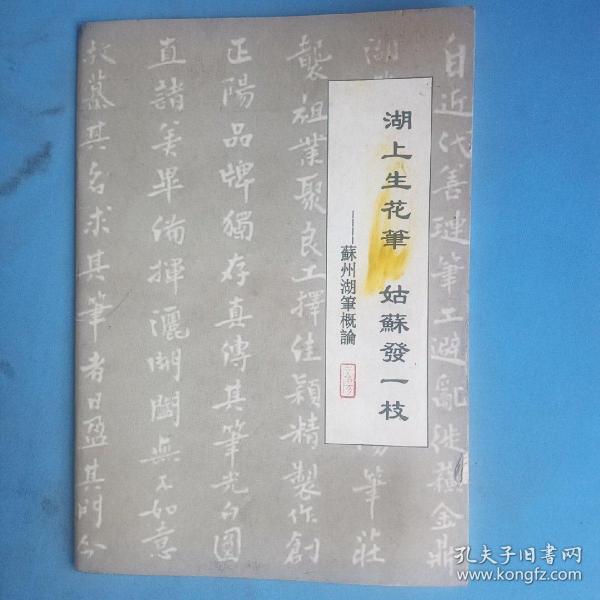 湖上生花筆 姑蘇發一枝
————蘇州湖筆概論
自近代善璉筆工避亂徙蘇金鼎
湖
筆莊
襲祖業聚良工擇佳穎精製作創
正陽品牌獨存真傳其筆光白圓
直諸美畢備揮灑開闔無不如意
故慕其名求其筆者日盈其門今
孔夫子旧书网
www.kongfz.com